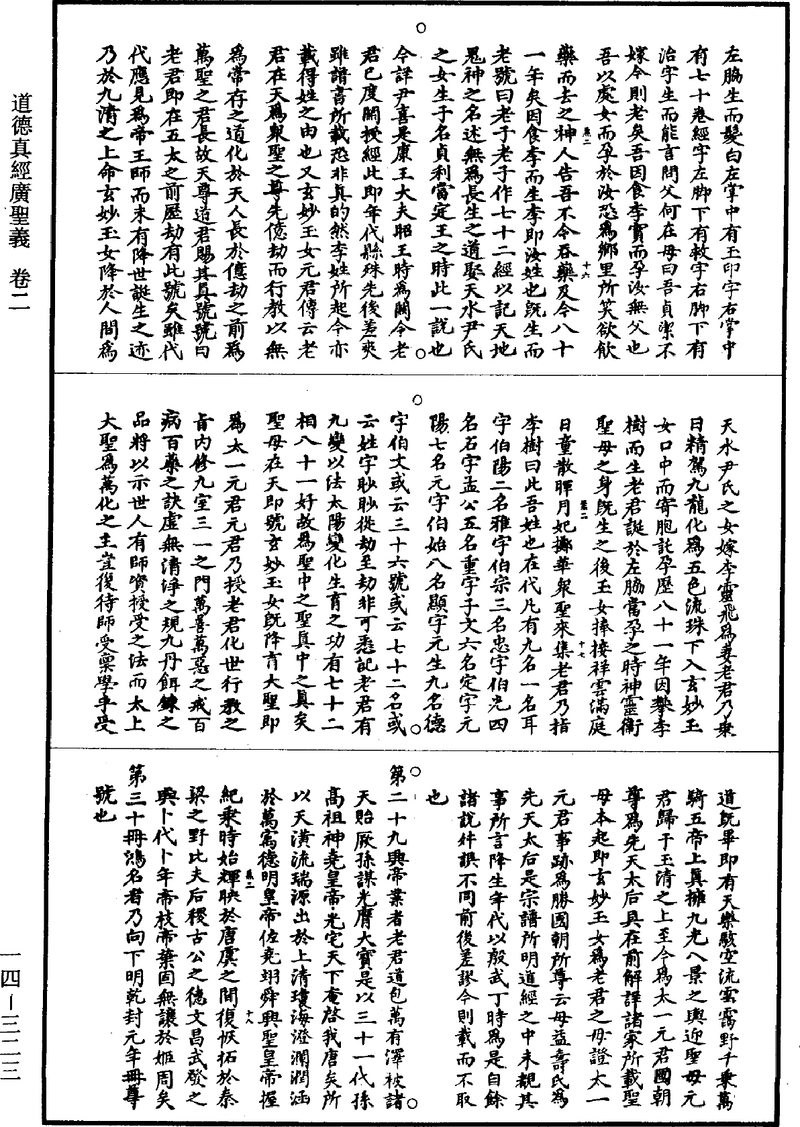 道德真經廣聖義　卷二
一四—三二三
左脇生而髮白左掌中有玉印字右掌中
有七十卷經字左脚下有敕字右脚下有
治字生而能言問父何在母曰吾貞潔不
嫁今則老矣吾因食李實而孕汝無父也
吾以處女而孕於汝恐為鄉里所笑欲飲
卷二　十六
藥而去之神人告吾不令吞藥及今八十
一年矣因食李而生李即汝姓也旣生而
老號曰老子老子作七十二經以記天地
鬼神之名述無為長生之道娶天水尹氏
之女生子名貞利當定王之時此一說也
今詳尹喜是康王大夫昭王時為關令老
君已度關授經此即年代縣殊先後差爽
雖譜書所載恐非真的然李姓所起今亦
載得姓之由也又玄妙玉女元君傳云老
君在天為衆聖之尊先億劫而行教以無
為常存之道化於天人長於億劫之前為
萬聖之君長故天尊道君賜其真號號曰
老君即在五太之前歷劫有此號矣雖代
代應見為帝王師而未有降世誕生之迹
乃於九清之上命玄妙玉女降於人間為
天水尹氏之女嫁李靈飛為妻老君乃乘
日精駕九龍化為五色流珠下入玄妙玉
女口中而寄胞託孕歷八十一年因攀李
樹而生老君誕於左脇當孕之時神靈衛
聖母之身旣生之後玉女捧接祥雲滿庭
卷二　十七
日童散暉月妃擲華衆聖來集老君乃指
李樹曰此吾姓也在代凡有九名一名耳
字伯陽二名雅字伯宗三名忠字伯光四
名石字孟公五名重字子文六名定字元
陽七名元字伯始八名顯字元生九名德
字伯文或云三十六號或云七十二名或
云姓字眇眇從劫至劫非可悉記老君有
九變以法太陽變化生育之功有七十二
相八十一好故為聖中之聖真中之真矣
聖母在天即號玄妙玉女旣降育大聖即
為太一元君元君乃授老君化世行教之
旨內修九室三一之門萬善萬惡之戒百
病百藥之訣虛無清淨之規九丹餌鍊之
品將以示世人有師資授受之法而太上
大聖為萬化之主豈復待師受稟學乎受
道旣畢即有天樂駭空流雲靄野千乘萬
騎五帝上真擁九光八景之輿迎聖母元
君歸于玉清之上至今為太一元君國朝
尊為先天太后具在前解詳諸家所載聖
母本起即玄妙玉女為老君之母證太一
元君事跡為勝國朝所尊云母益壽氏為
先天太后是宗譜所明道經之中未覩其
事所言降生年代以殷武丁時為是自餘
諸說舛誤不同前後差謬今則載而不取
也
第二十九興帝業者老君道包萬有澤被諸
天貽厥孫謀光膺大寶是以三十一代孫
高祖神堯皇帝光宅天下奄啓我唐矣所
以天潢流瑞源出於上清瓊海澄瀾潤涵
於萬寓德明皇帝佐堯翊舜興聖皇帝握
卷二　十八
紀乘時始輝映於唐虞之間復恢拓於秦
梁之野比夫后稷古公之德文昌武發之
興卜代卜年帝枝帝葉固無讓於姬周矣
第三十冊鴻名者乃向下明乾封元年冊尊
號也